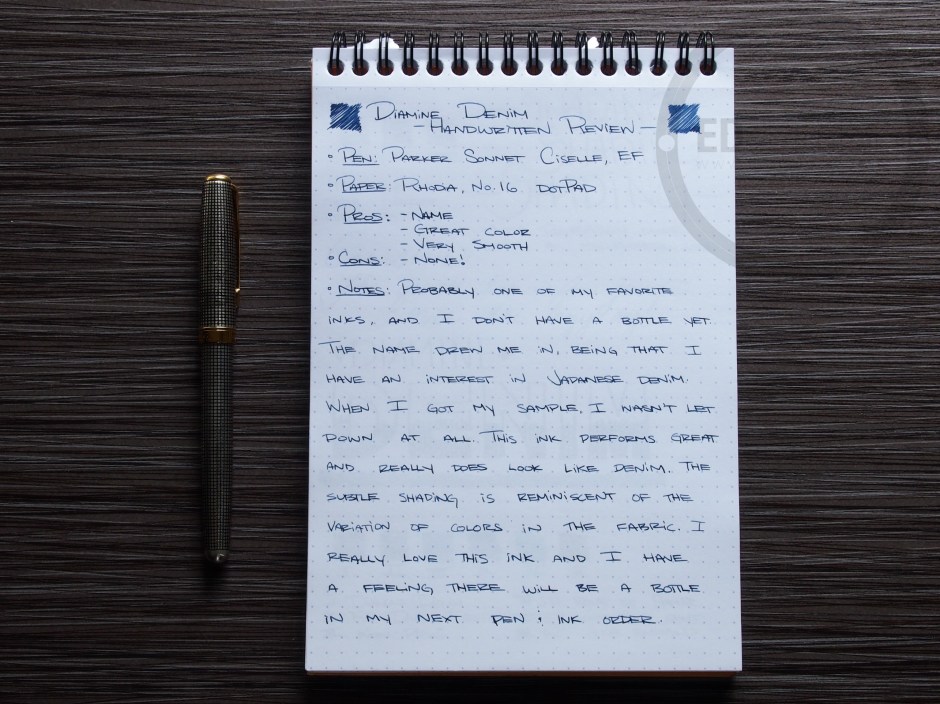 Diamine Denim
- Handwritten Review -
• Pen: Parker Sonnet Ciselle, EF
• Paper: Rhodia, No. 16 dotPad
• Pros: - Name
- Great color
- Very smooth
• Cons: - None!
• Notes: Probably one of my favorite
inks, and I don't have a bottle yet.
The name drew me in, being that I
have an interest in Japanese denim.
When I got my sample, I wasn't let
down at all. This ink performs great
and really does look like denim. The
subtle shading is reminiscent of the
variation of colors in the fabric. I
really love this ink and I have
a feeling there will be a bottle
in my next pen & ink order.
ED